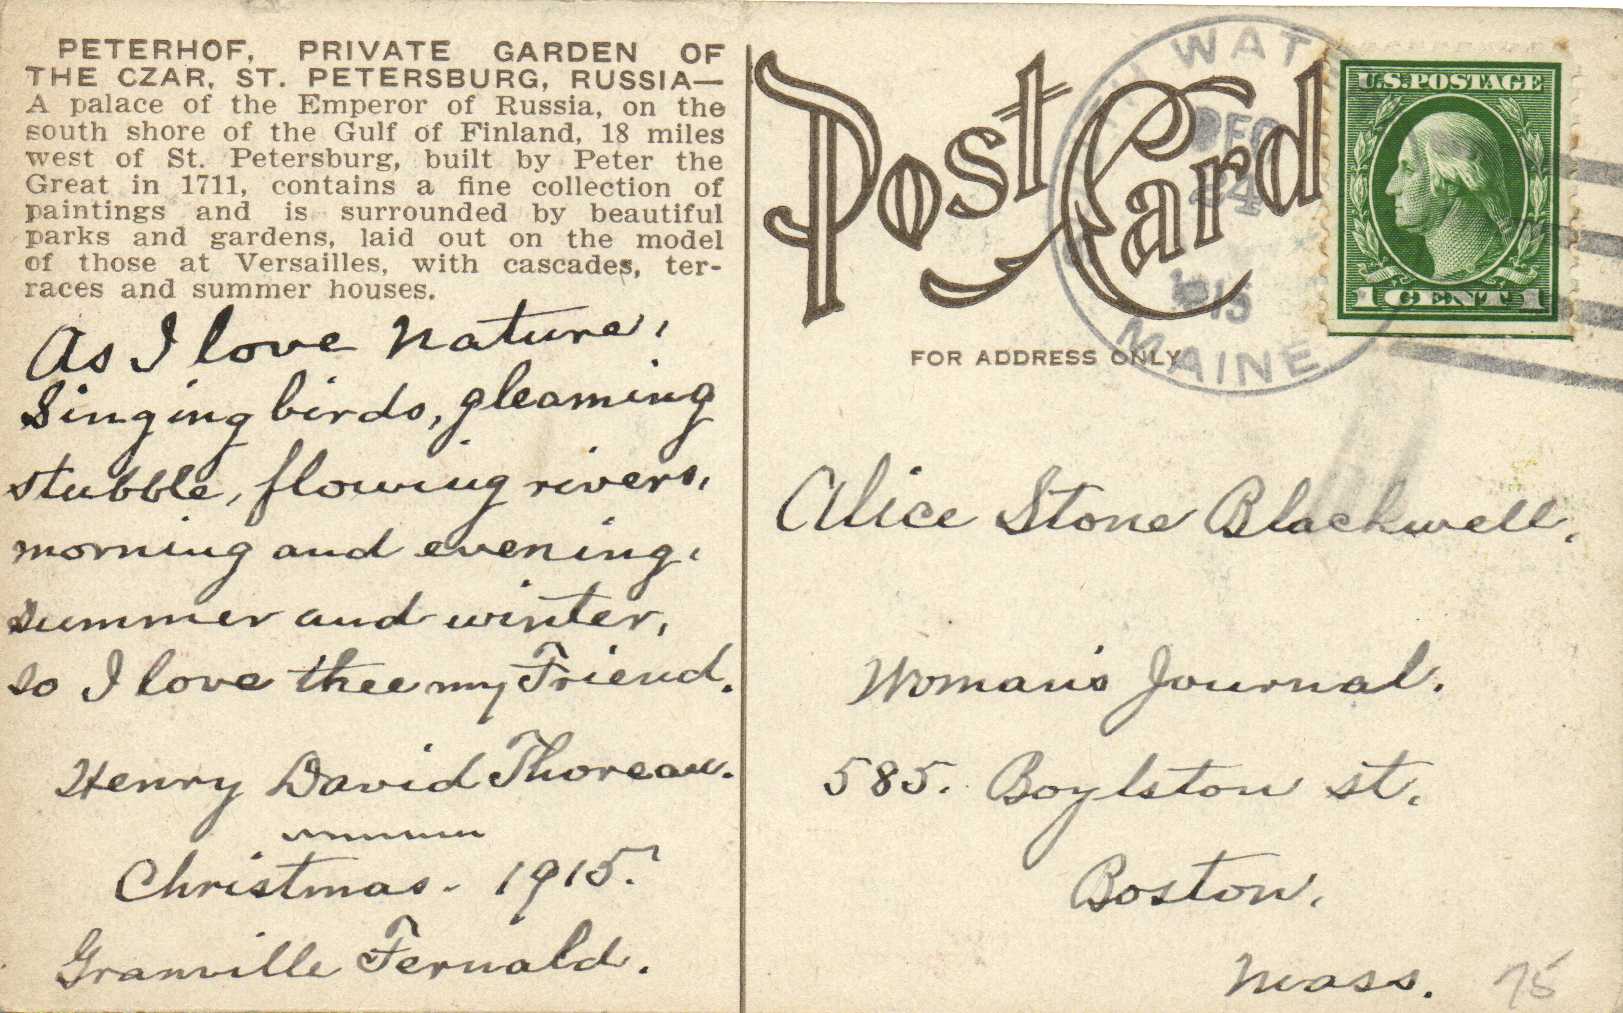 PETERHOF, PRIVATE GARDEN OF
THE CZAR, ST. PETERSBURG, RUSSIA—
A palace of the Emperor of Russia, on the
south shore of the Gulf of Finland, 18 miles
west of St. Petersburg, built by Peter the
Great in 1711, contains a fine collection of
paintings and is surrounded by beautiful
parks and gardens, laid out on the model
of those at Versailles, with cascades, ter-
races and summer houses.
As I love nature,
Singing birds, gleaming
stubble, flowing rivers,
morning and evening,
summer and winter,
so I love thee my Friend.
Henry David Thoreau.
Christmas - 1915.
Granville Fernald.
Post Card
FOR ADDRESS ONLY
WAT
DEC
24
1915
MAINE
U.S. POSTAGE
1 CENT 1
Alice Stone Blackwell,
Woman's Journal.
585. Boylston st.
Boston,
Mass.
75